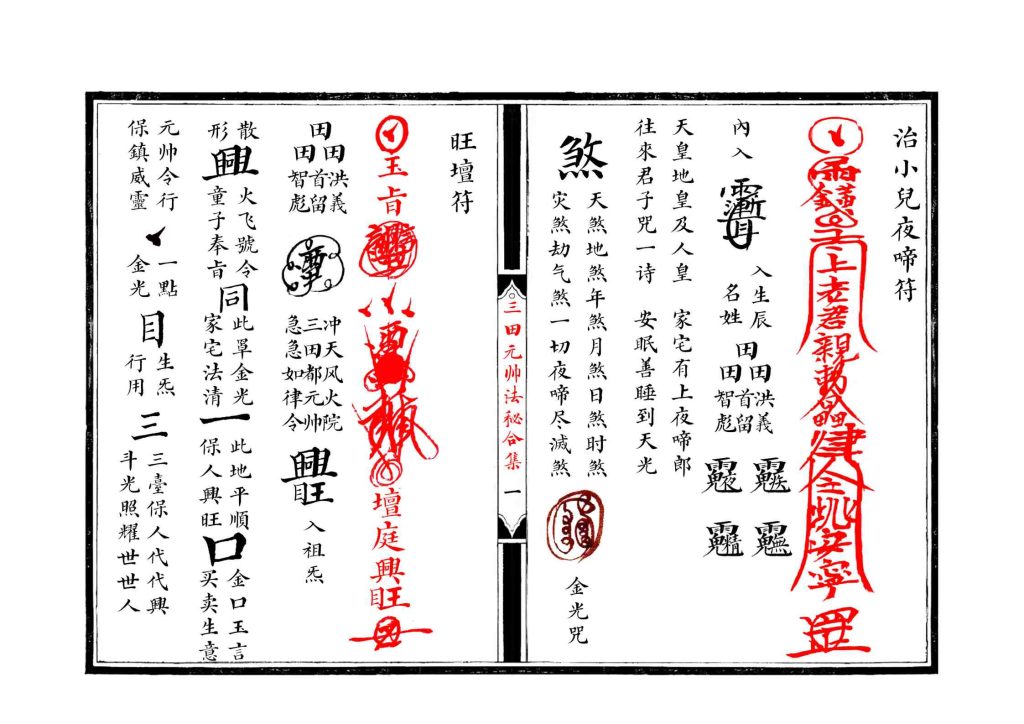 治小兒夜啼符
上老君親勅
安寧
內入
入生辰
名姓
田田洪義
田首留
智彪
天皇地皇及人皇 家宅有上夜啼郎
往來君子咒一诗 安眠善睡到天光
煞
天煞地煞年煞月煞日煞时煞
灾煞劫气煞一切夜啼尽滅煞
金光咒
三田元帅法秘合集 一
旺壇符
玉旨
壇庭興旺
田田洪義
田首留
智彪
冲天风火院
三田都元帅
急急如律令
入祖炁
散形
興
火飞號令
童子奉旨
同
此罩金光
家宅法清
一
此地平順
保人興旺
口
金口玉言
买卖生意
元帅令行
保鎮威靈
一點
金光
目
生炁
行用
三
三臺保人代代興
斗光照耀世世人